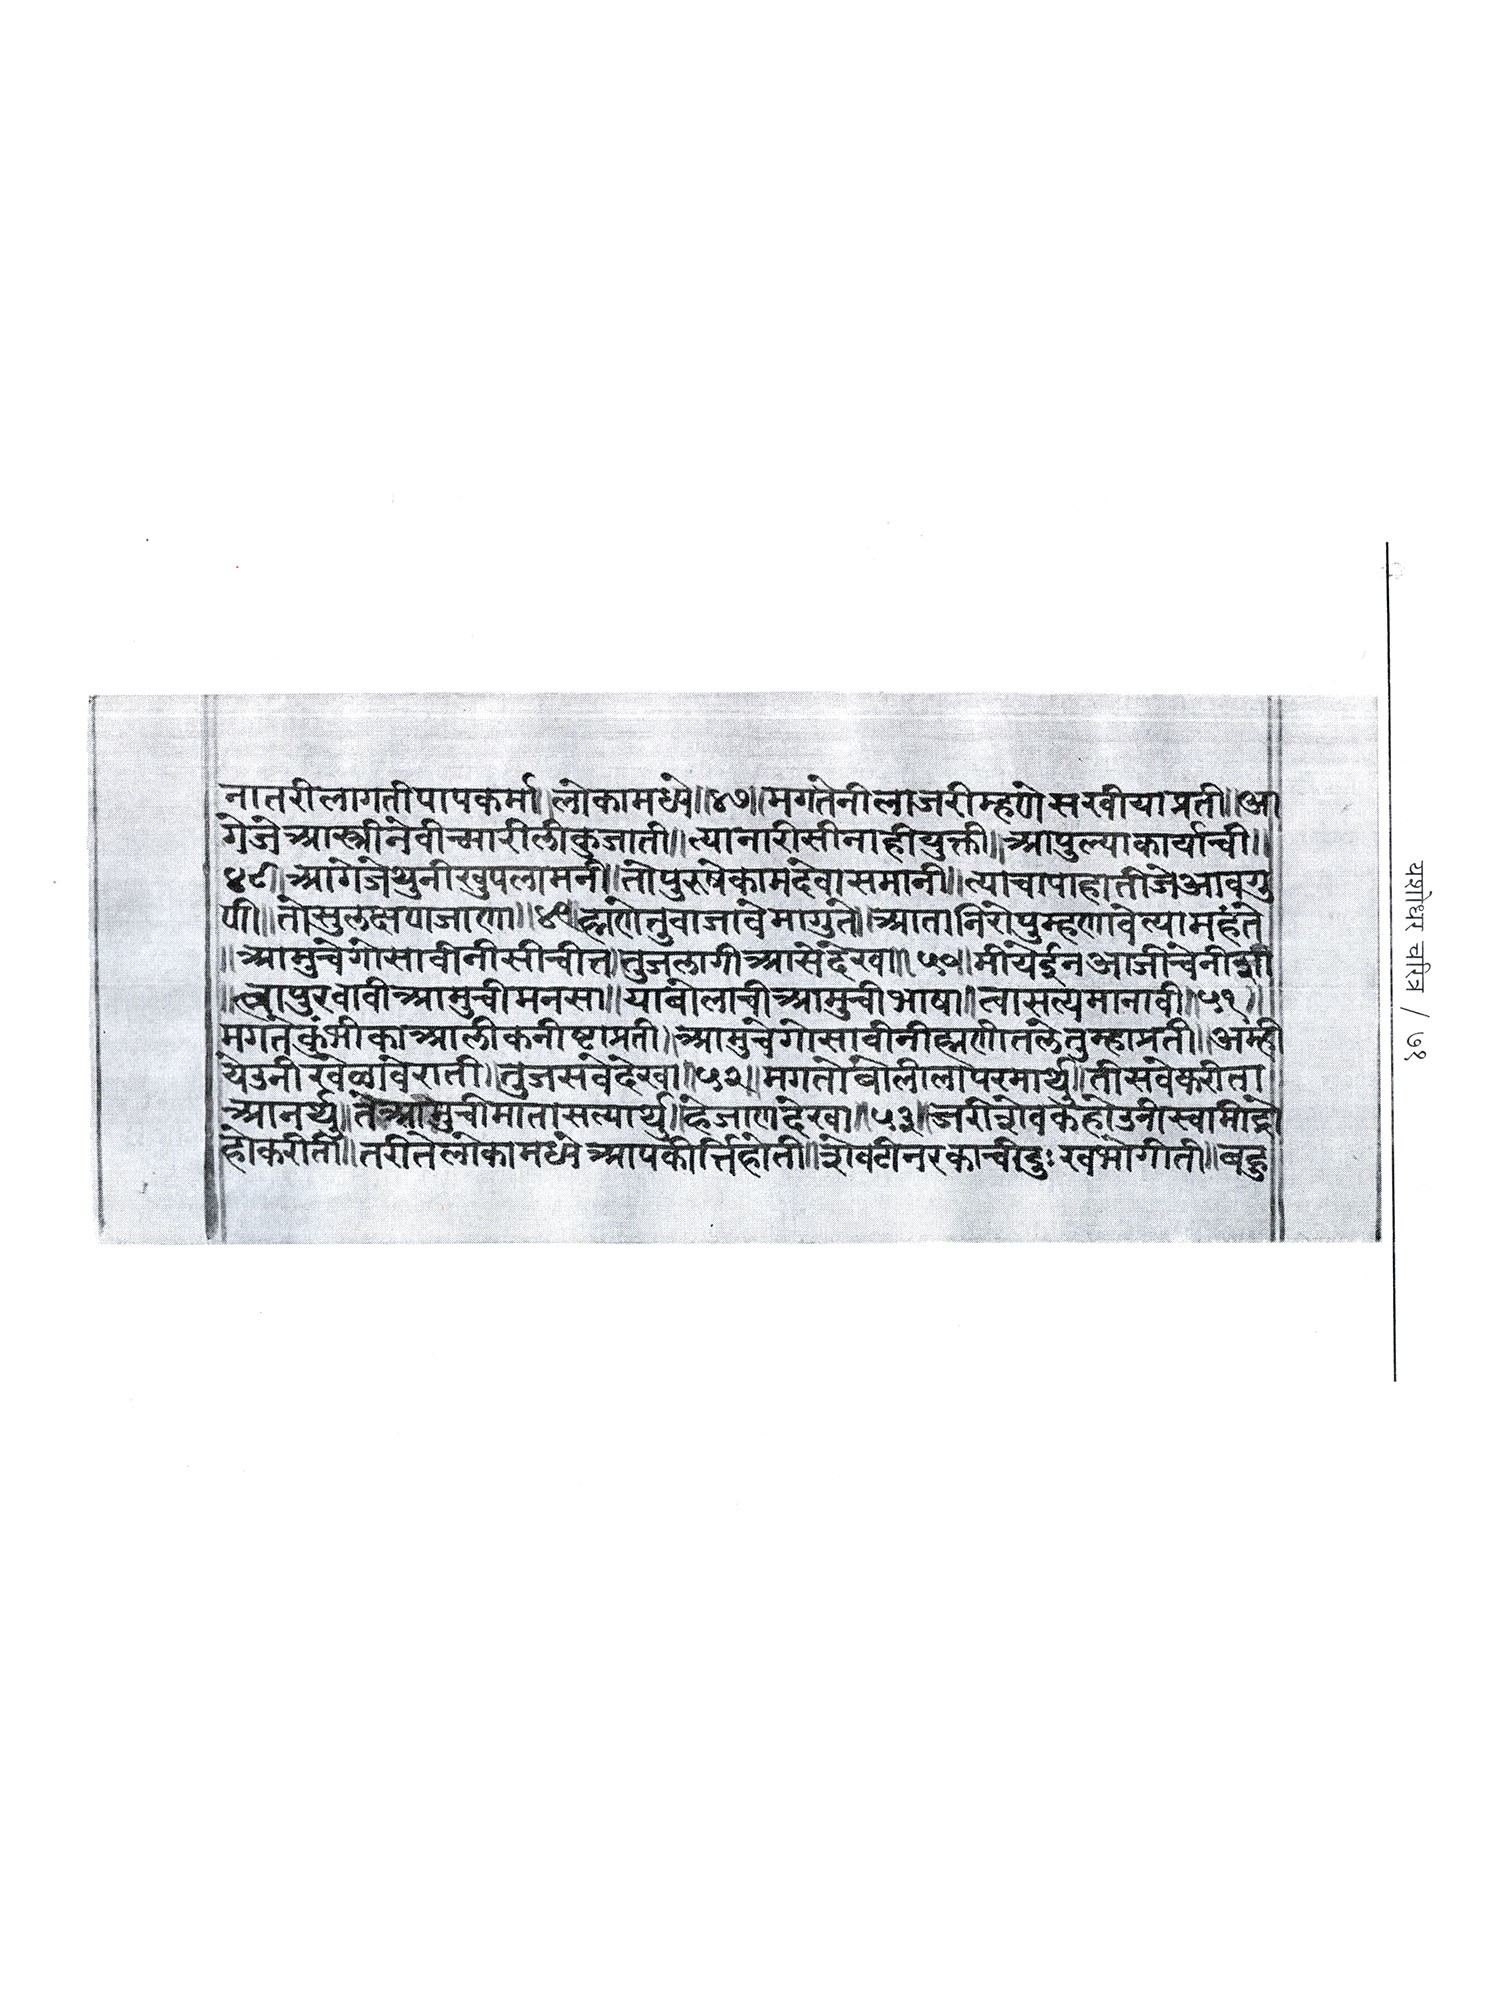 नातरीलागतीपापकर्मा॥लोकामध्ये॥४७॥मगतेनीलाजरीम्हणेसखीयाप्रती॥आ
गेजेआस्त्रीनेवीच्यारीलीकुजाती॥त्यानारीसीनाहीयुक्ती॥आपुल्याकार्याची॥
४८॥आगेजेथुनीखुपलामनी॥तोपुरुषेकामदेवासमानी॥त्याचापाहातीजेआवगु
णी॥तोसुलक्षणाजाणा॥४९॥ह्मणेतुवाजावेमागुते॥आतानिरोपुम्हणावेत्यामहंते
॥आमुचेगोसावीनीसीचीत्त॥तुजलागीआसेदेखा॥५०॥मीयेईनआजीचेनीसी
॥त्वापुरवावीआमुचीमनसा॥याबोलाचीआमुचीभाषा॥त्वासत्यमानावी॥५१॥
मगतेकुंभीकाआलीकनीष्टाप्रती॥आमुचेगोसावीनीह्मणीतलेतुम्हाप्रती॥अम्ही
येउनीखेळावेराती॥तुजसवेदेखा॥५२॥मगतोबोलीलापरमार्थ॥तीसवेकरीता
आनर्थ॥तेआमुचीमातासत्यार्थ॥हेजाणदेखा॥५३॥जरीशेवकहोउनीस्वामीद्रो
होकरीती॥तरीतेलोकामध्येआपकीर्त्तिहोती॥शेवटीनरकाचीदुःखभोगीती॥बहु
यशोधर चरित्र / ७१